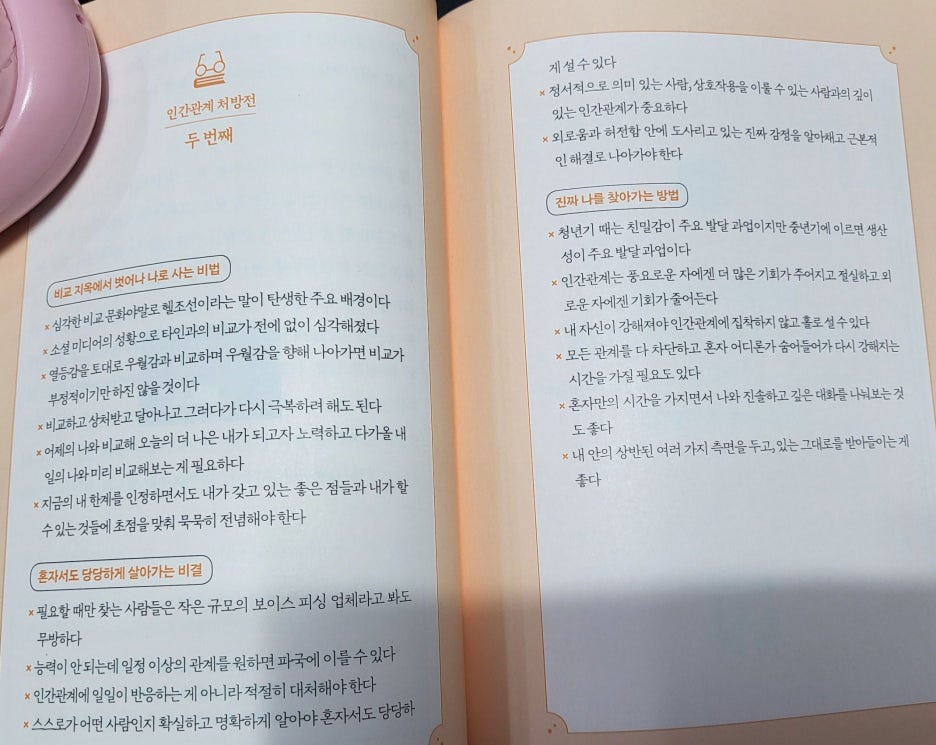 인간관계 처방전
두 번째
비교 지옥에서 벗어나 나로 사는 비법
× 심각한 비교 문화야말로 헬조선이라는 말이 탄생한 주요 배경이다
× 소셜 미디어의 성황으로 타인과의 비교가 전에 없이 심각해졌다
× 열등감을 토대로 우월감과 비교하며 우월감을 향해 나아가면 비교가
부정적이기만 하진 않을 것이다
× 비교하고 상처받고 달아나고 그러다가 다시 극복하려 해도 된다
× 어제의 나와 비교해 오늘의 더 나은 내가 되고자 노력하고 다가올 내
일의 나와 미리 비교해보는 게 필요하다
× 지금의 내 한계를 인정하면서도 내가 갖고 있는 좋은 점들과 내가 할
수 있는 것들에 초점을 맞춰 묵묵히 전념해야 한다
혼자서도 당당하게 살아가는 비결
× 필요할 때만 찾는 사람들은 작은 규모의 보이스 피싱 업체라고 봐도
무방하다
× 능력이 안 되는데 일정 이상의 관계를 원하면 파국에 이를 수 있다
× 인간관계에 일일이 반응하는 게 아니라 적절히 대처해야 한다
× 스스로가 어떤 사람인지 확실하고 명확하게 알아야 혼자서도 당당하
게 설 수 있다
× 정서적으로 의미 있는 사람, 상호작용을 이룰 수 있는 사람과의 깊이
있는 인간관계가 중요하다
× 외로움과 허전함 안에 도사리고 있는 진짜 감정을 알아채고 근본적
인 해결로 나아가야 한다
진짜 나를 찾아가는 방법
× 청년기 때는 친밀감이 주요 발달 과업이지만 중년기에 이르면 생산
성이 주요 발달 과업이다
× 인간관계는 풍요로운 자에겐 더 많은 기회가 주어지고 절실하고 외
로운 자에겐 기회가 줄어든다
× 내 자신이 강해져야 인간관계에 집착하지 않고 홀로 설 수 있다
× 모든 관계를 다 차단하고 혼자 어디론가 숨어들어가 다시 강해지는
시간을 가질 필요도 있다
× 혼자만의 시간을 가지면서 나와 진솔하고 깊은 대화를 나눠보는 것
도 좋다
× 내 안의 상반된 여러 가지 측면을 두고, 있는 그대로를 받아들이는 게
좋다